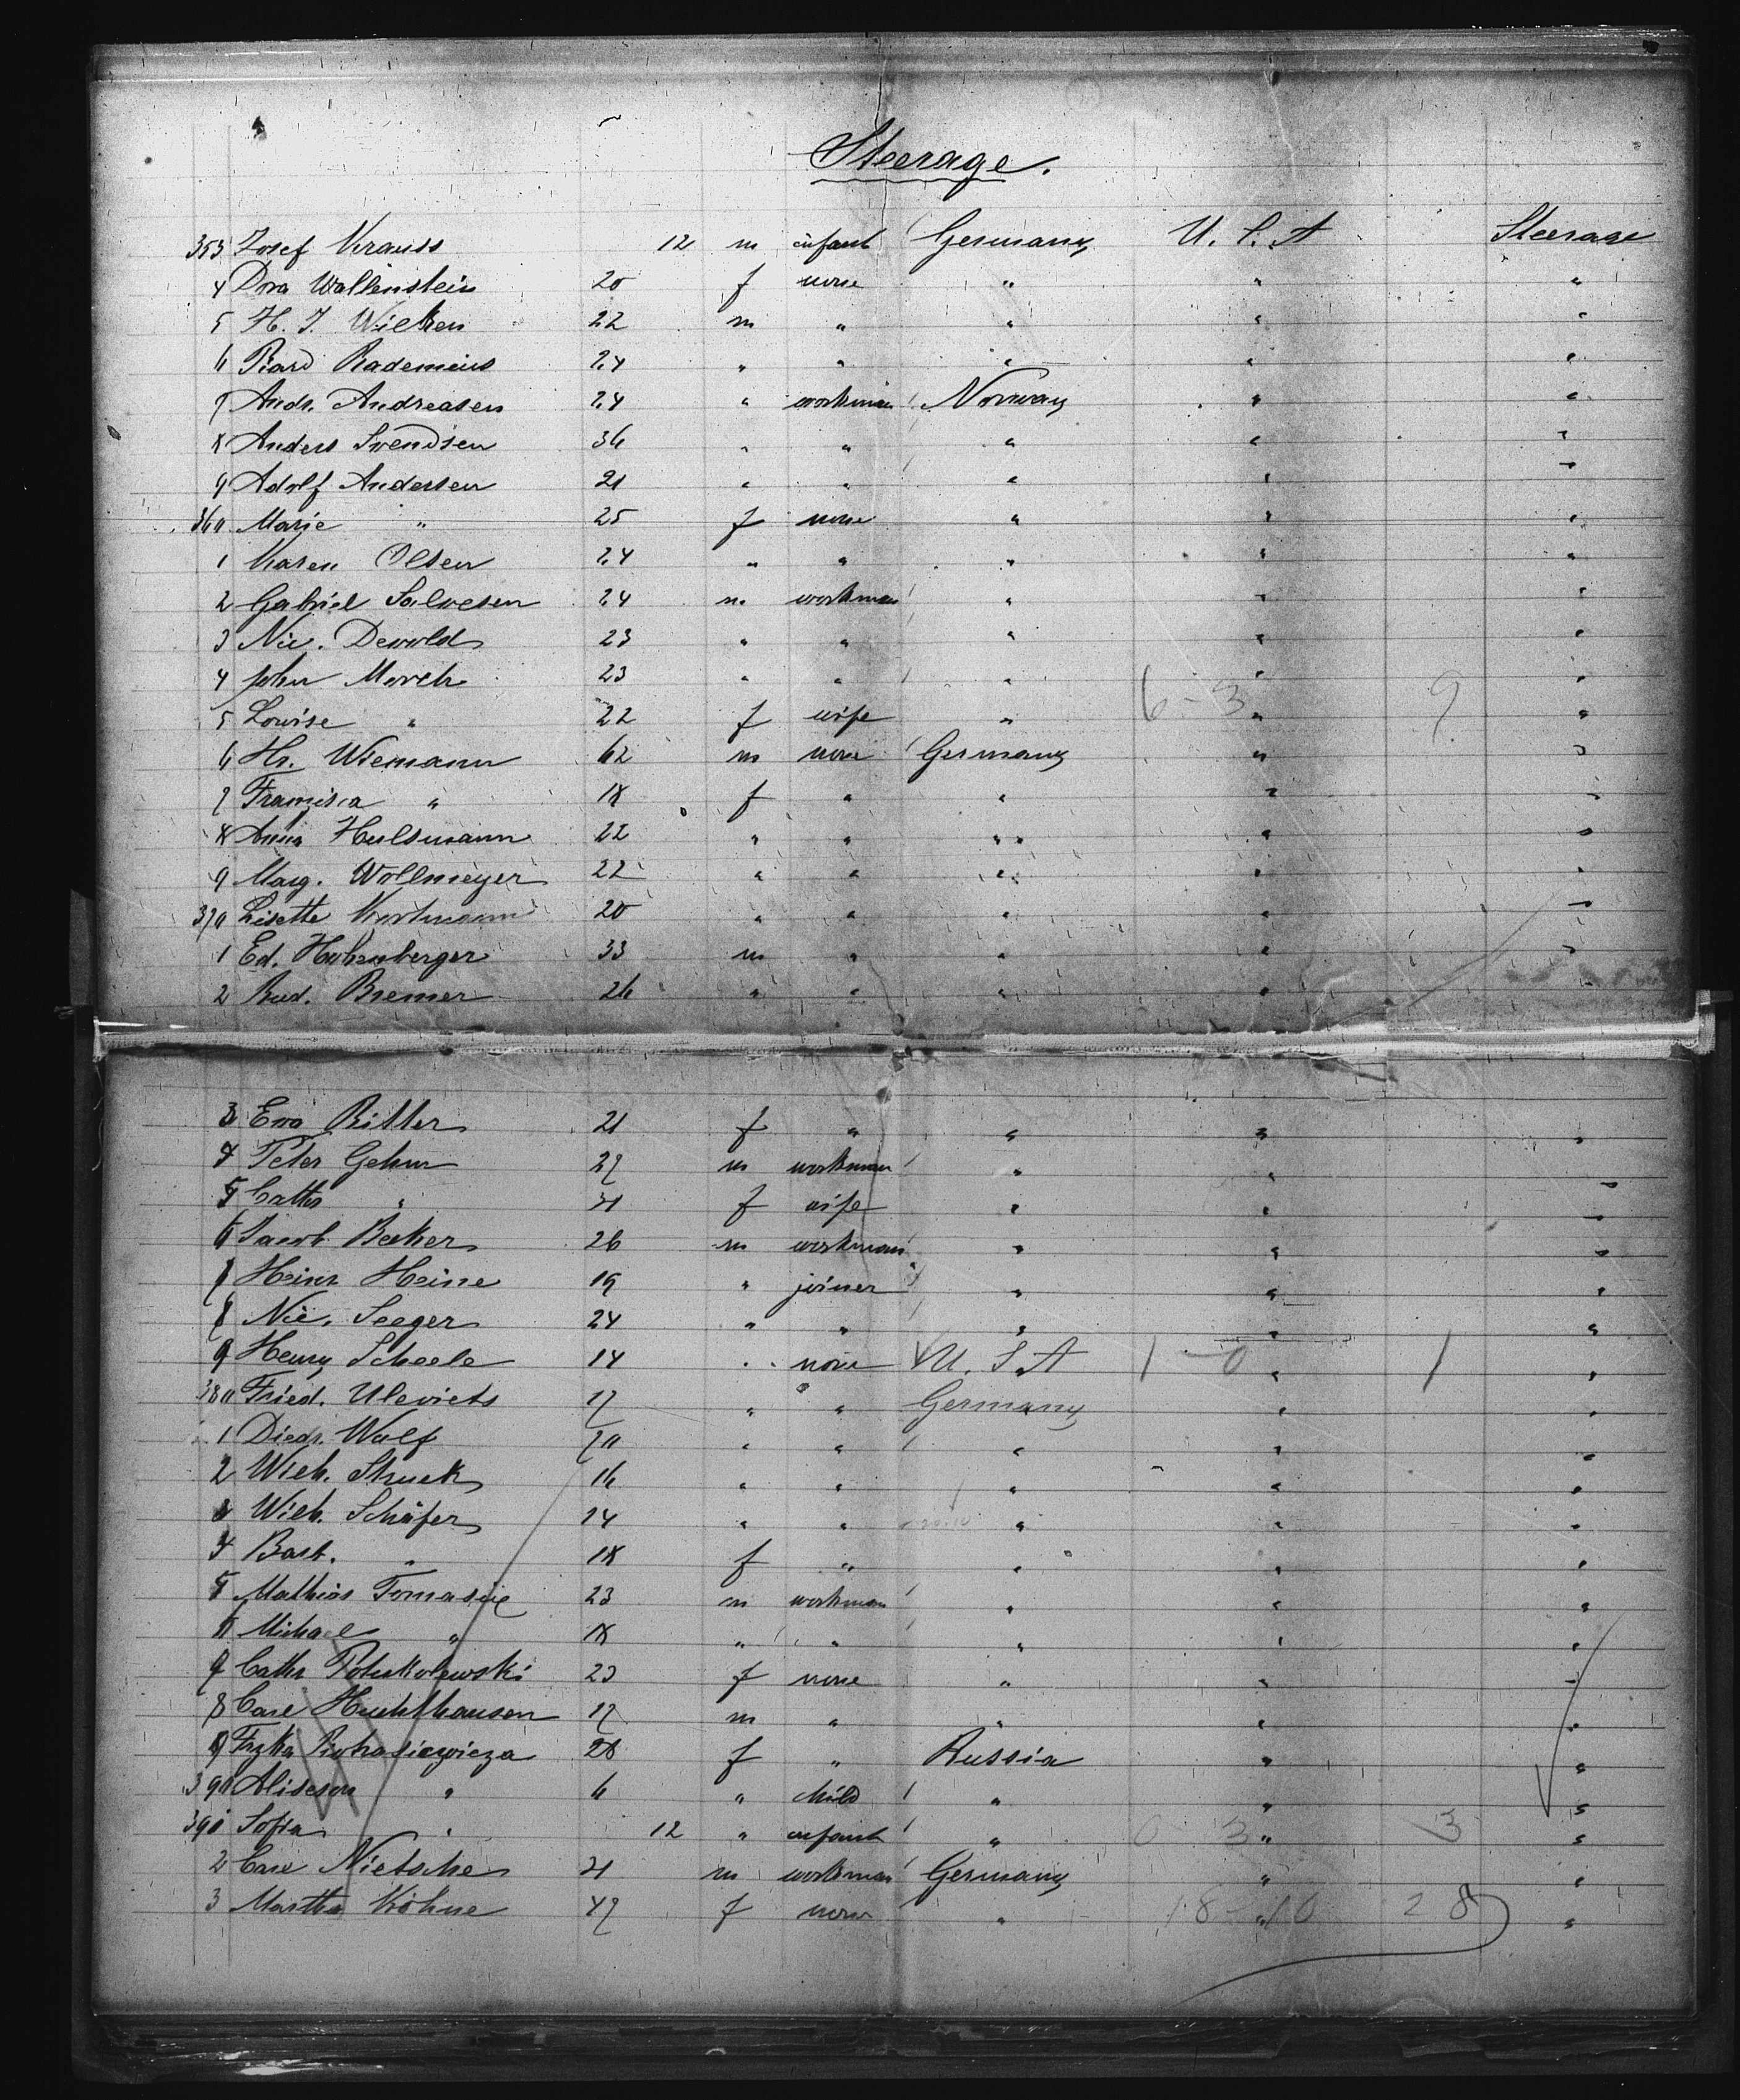 Steerage.
353 Josef Krauss 12 m infant Germany U. S. A Steerage
4 Dora Wallenstein 20 f none " " "
5 H. J. Wilken 22 m " " " "
6 Rademeius 24 " " " " "
7 Andr. Andreasen 24 " workman Norway " "
8 Anders Svendsen 36 " " " " "
9 Adolf Andersen 21 " " " " "
360 Marie " 25 f none " " "
1 Karen Olsen 24 " " " " "
2 Gabriel Salvesen 24 m workman " " "
3 Nic. Dewold 23 " " " " "
4 John Morch 23 " " " " "
5 Lowise " 22 f wife " 6-3 " 9 "
6 Hr. Wiemann 62 m none Germany " "
7 Franzisca " 18 f " " " "
8 Anna Hulsmann 22 " " " " "
9 Marg. Wollmeyer 22 " " " " "
370 Lisette 20 " " " " "
1 Ed. Huhenberger 33 m " " " "
2 Rud. Bremer 26 " " " " "
3 Eva Ritter 21 f " " " "
4 Peter Gehm 27 m workman " " "
5 Cathr " f wife " " "
6 Jacob Becker 26 m workman " " "
7 Heinr Heine 19 " joiner " " "
8 Nic. Seeger 24 " " " " "
9 Henry Scheele 14 " none U. S. A 1-0 " 1 "
380 Fried. Ulericts 17 " " Germany " "
1 Diedr. Wulf 70 " " " " "
2 Wilh. Struck 16 " " " " "
3 Wilh. Schäfer 14 " " " " "
4 Barb. " 18 f " " " "
5 Mathias Tomasic 23 m workman " " "
6 Michael " 18 " " " " "
7 Cathr 23 f none " " "
8 Carl Huchthausen 17 m " " " "
9 28 f " Russia " "
390 " 6 " child " " "
391 Sofia " 12 " infant " 0 3 " 3 "
2 Carl Nietsche m workman Germany " "
3 Martha Köhne 47 f none " 18-10 " 28 "